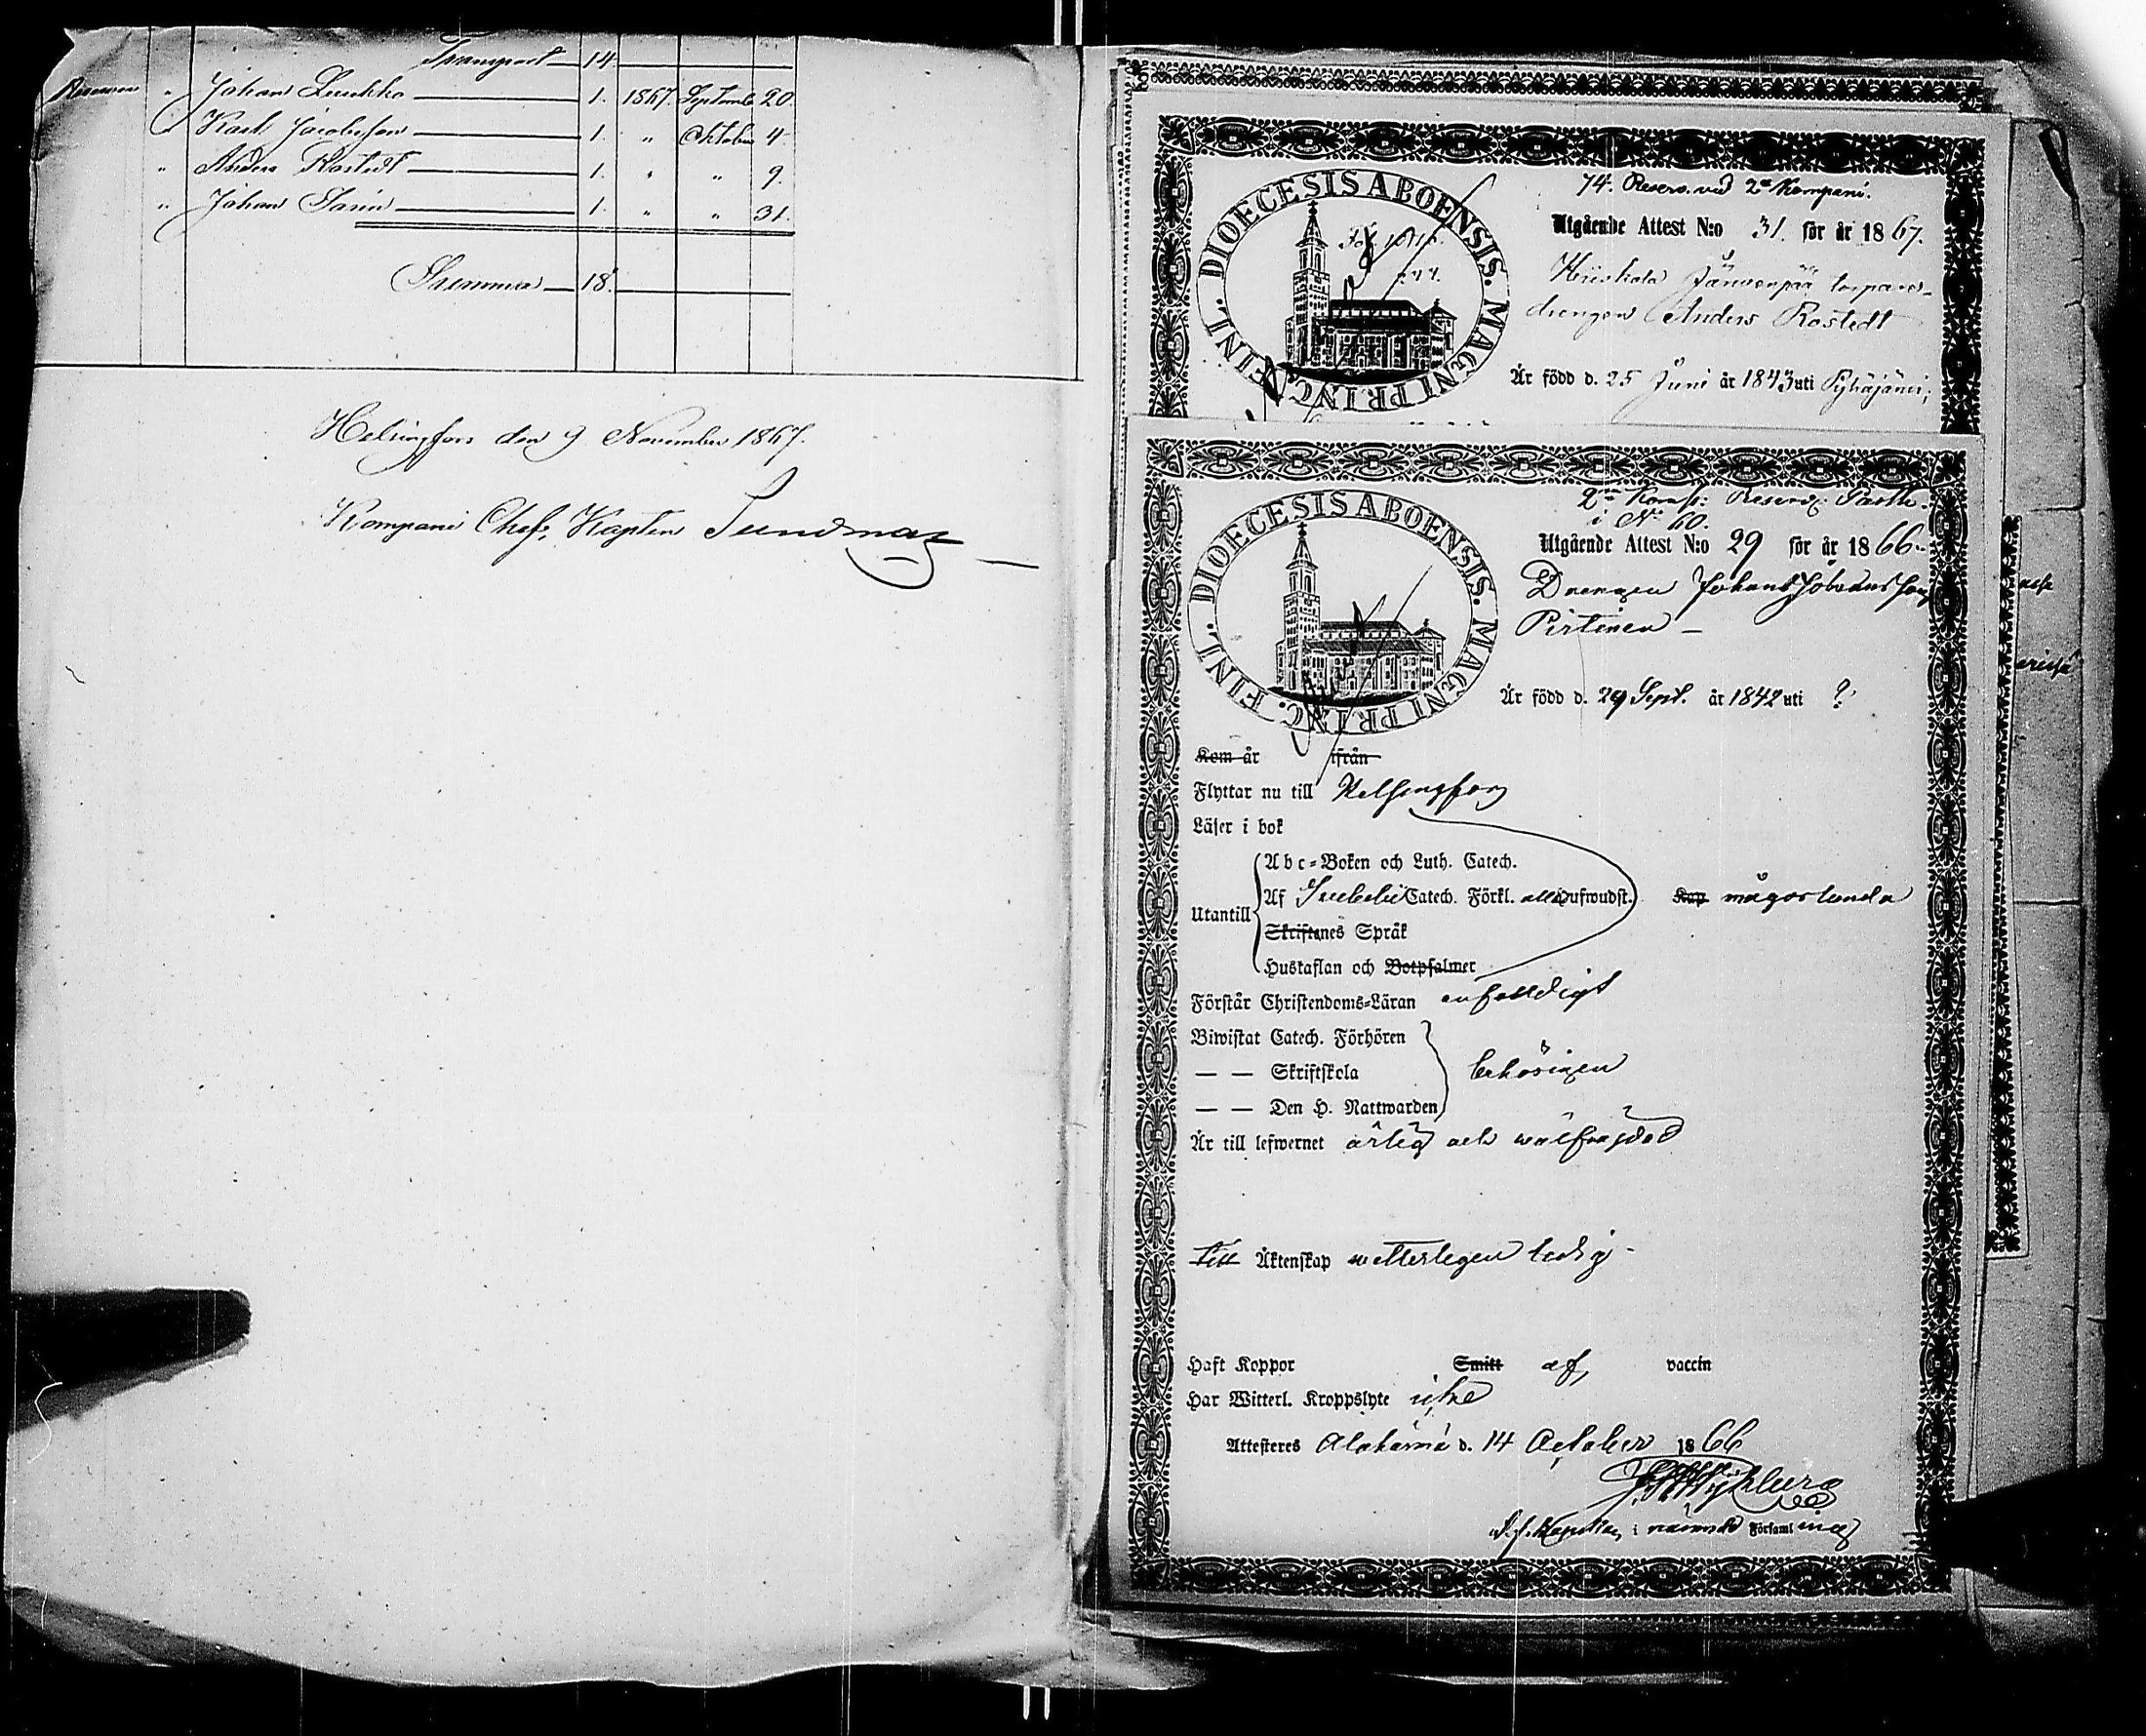 Transport 14
" Johan 1. 1867 Septemb 20
" Karl Jacobsson 1. " Oktober 4
" Anders Rostedt 1. " " 9.
" Johan 1. " " 31.
Summa 18
Helsingfors den 9 November 1867.
Kompani Chef, Kapten
DIOECESIS ABOENSIS. MAGNI PRINC. FINL.
74. Reserv. vid 2a Kompani.
Utgående Attest N:o 31. för år 1867.
Järvenpää torpare-
drengen Anders Rostedt
Är född d. 25 Juni år 1843 uti
DIOECESIS ABOENSIS. MAGNI PRINC. FINL.
2a Komp: Reserv:
i No 60.
Utgående Attest N:o 29 för år 1866
Drengen Johan Johansson
Pirtinen
Är född d. 29 Sept. år 1842 uti ?
Kom år ifrån
Flyttar nu till Helsingfors
Läser i bok
Abc-Boken och Luth. Catech.
Utantill Af Svebelii Catech. Förkl. Hufwudst. Kap någorlunda
Skriftenes Språk
Hustaflan och Botpsalmer
Förstår Christendoms-Läran enfaldigt
Biwistat Catech. Förhören
— — Skriftskola behörigen
— — Den H. Nattwarden
Är till lefwernet ärlig och wälfrejdad
Till Äktenskap wetterligen ledig
Haft Koppor Smitt af vaccin
Har Witterl. Kroppslyte icke
Attesteres Alahärmä d. 14 October 1866
i nämnde Församling